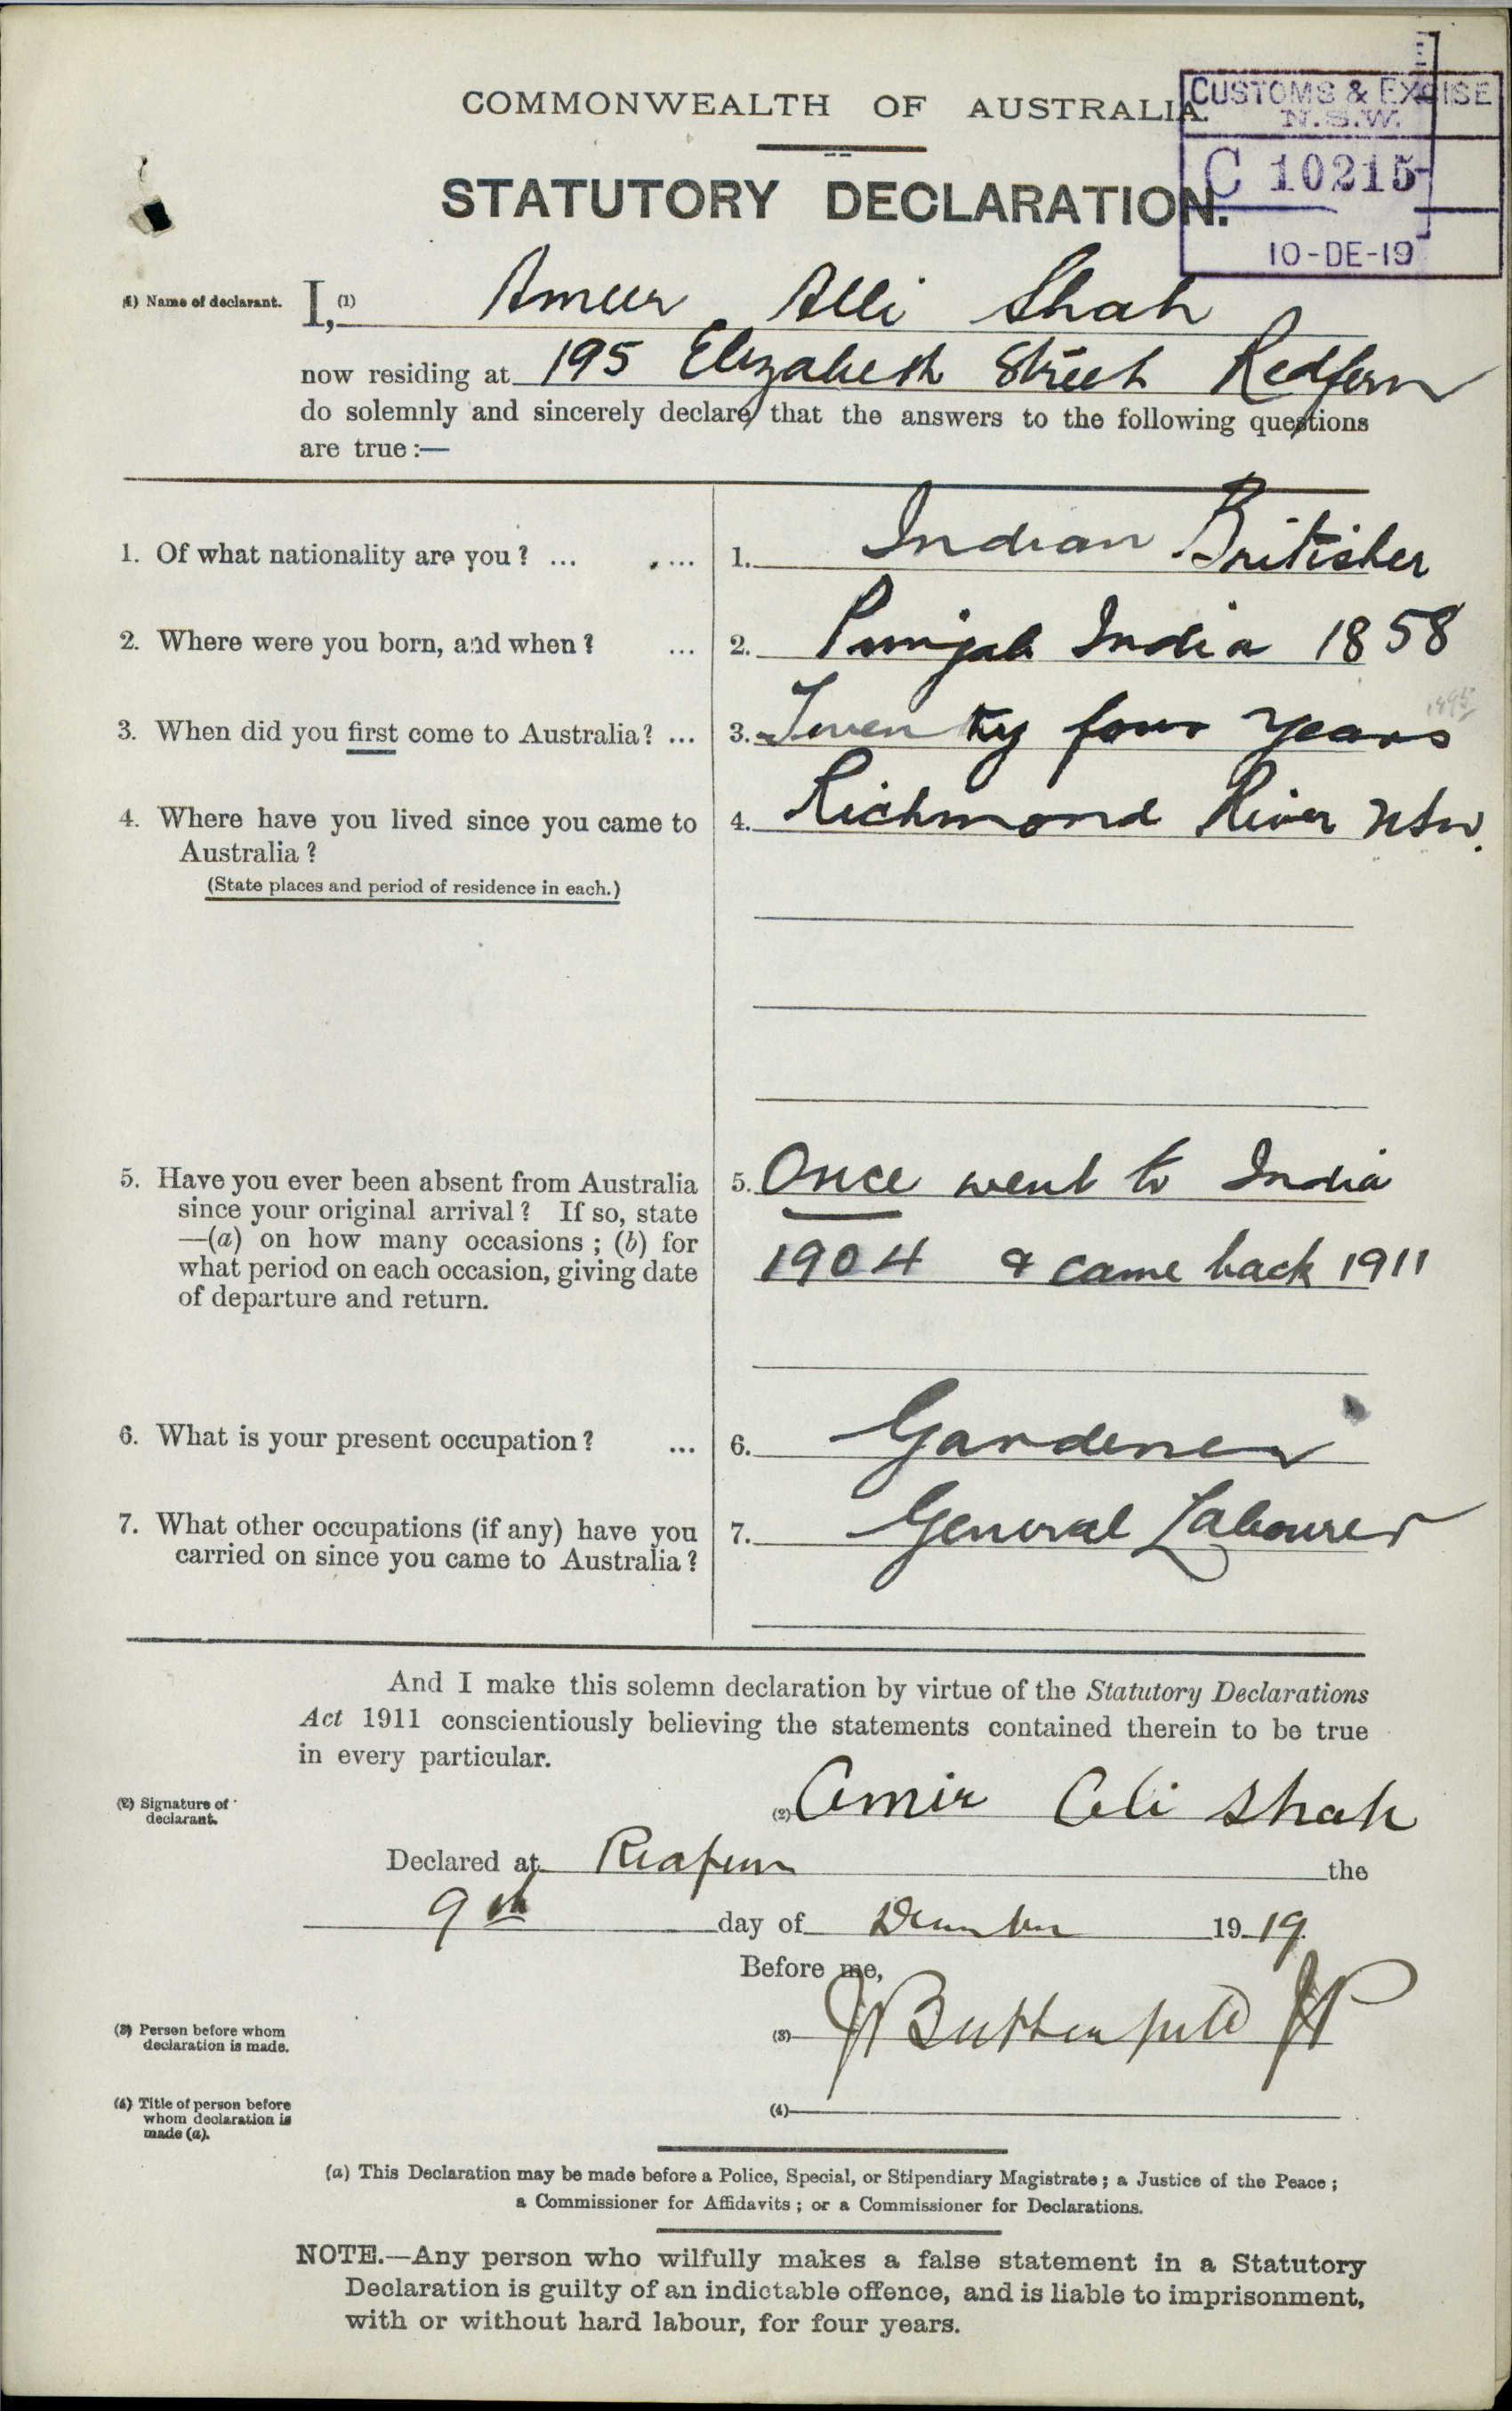 CUSTOMS & EXCISE
N.S.W.
C 10215
10-DE-19
COMMONWEALTH OF AUSTRALIA.
STATUTORY DECLARATION.
(1) Name of declarant. I, (1) Ameer Alli Shah
now residing at 195 Elizabeth Street Redfern
do solemnly and sincerely declare that the answers to the following questions
are true :—
1. Of what nationality are you ? ... ... 1. Indian Britisher
2. Where were you born, and when ? ... 2. Punjab India 1858
3. When did you first come to Australia? ... 3. Twenty four years 1895
4. Where have you lived since you came to 4. Richmond River NSW.
Australia ?
(State places and period of residence in each.)
5. Have you ever been absent from Australia 5. Once went to India
since your original arrival ? If so, state
—(a) on how many occasions ; (b) for
what period on each occasion, giving date 1904 & came back 1911
of departure and return.
6. What is your present occupation ? ... 6. Gardener
7. What other occupations (if any) have you 7. General Labourer
carried on since you came to Australia ?
And I make this solemn declaration by virtue of the Statutory Declarations
Act 1911 conscientiously believing the statements contained therein to be true
in every particular.
(2) Signature of declarant. (2) Amir Ali Shah
Declared at Redfern the
9th day of December 1919.
Before me,
(3) Person before whom declaration is made. (3) J Butterfield JP
(4) Title of person before whom declaration is made (a). (4)
(a) This Declaration may be made before a Police, Special, or Stipendiary Magistrate ; a Justice of the Peace ;
a Commissioner for Affidavits ; or a Commissioner for Declarations.
NOTE.—Any person who wilfully makes a false statement in a Statutory
Declaration is guilty of an indictable offence, and is liable to imprisonment,
with or without hard labour, for four years.